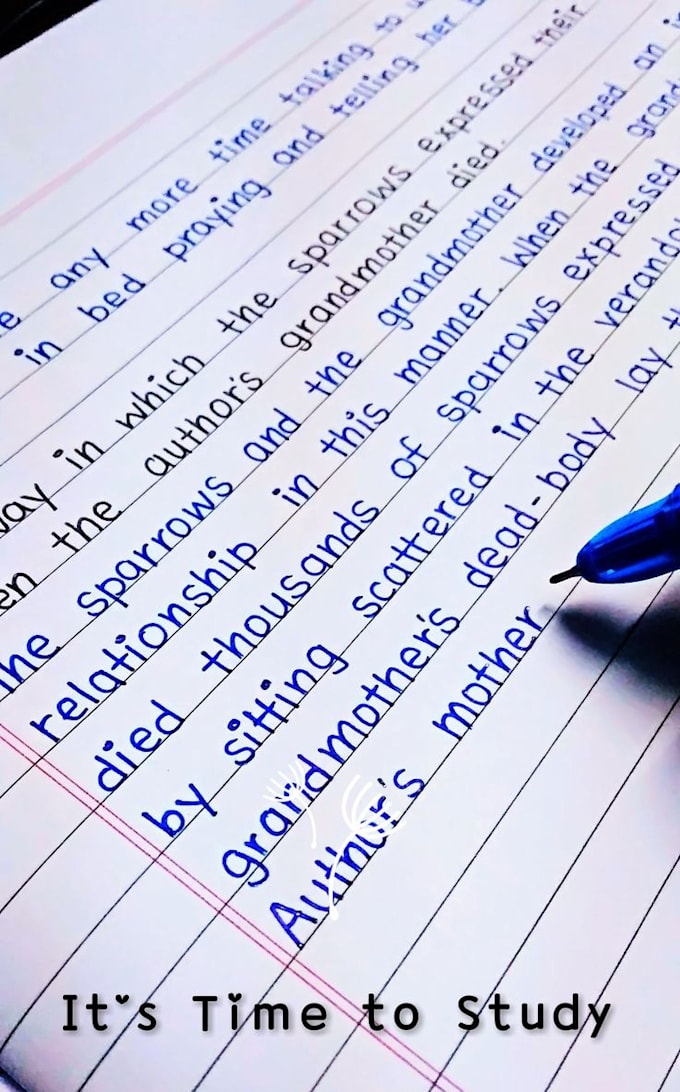 any more time talking to
in bed praying and telling her
in which the sparrows expressed their
the author's grandmother died.
sparrows and the grandmother developed an
relationship in this manner. When the
died thousands of sparrows expressed
by sitting scattered in the
grandmother's dead-body lay
Author's mother
It's Time to Study